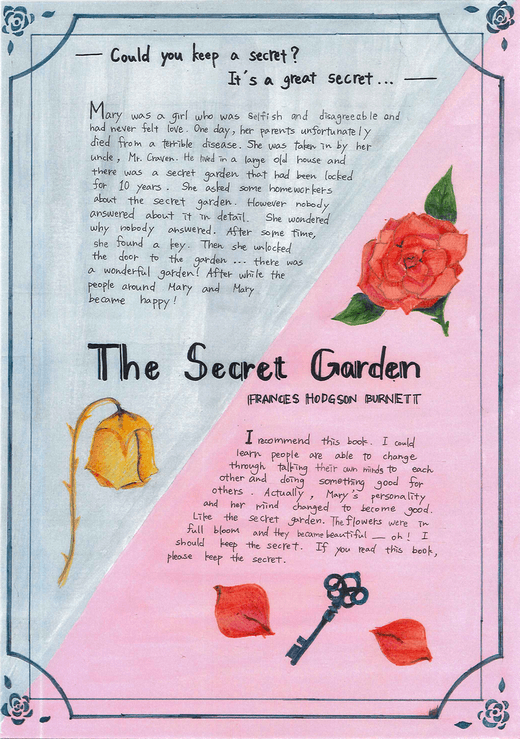 — Could you keep a secret?
It's a great secret... —
Mary was a girl who was selfish and disagreeable and
had never felt love. One day, her parents unfortunately
died from a terrible disease. She was taken in by her
uncle, Mr. Craven. He lived in a large old house and
there was a secret garden that had been locked
for 10 years. She asked some homeworkers
about the secret garden. However nobody
answered about it in detail. She wondered
why nobody answered. After some time,
she found a key. Then she unlocked
the door to the garden ... there was
a wonderful garden! After while the
people around Mary and Mary
became happy!
The Secret Garden
FRANCES HODGSON BURNETT
I recommend this book. I could
learn people are able to change
through talking their own minds to each
other and doing something good for
others. Actually, Mary's personality
and her mind changed to become good.
Like the secret garden. The flowers were in
full bloom and they became beautiful — oh! I
should keep the secret. If you read this book,
please keep the secret.